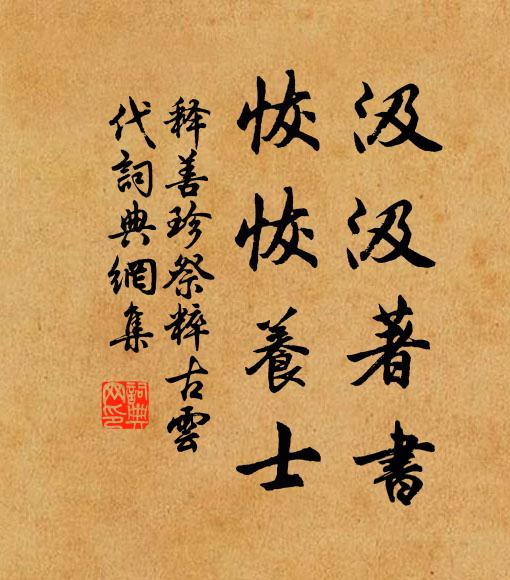 汲汲著書
恢恢養士
释善珍祭粹古雲
代詞典網集
詞典
网印